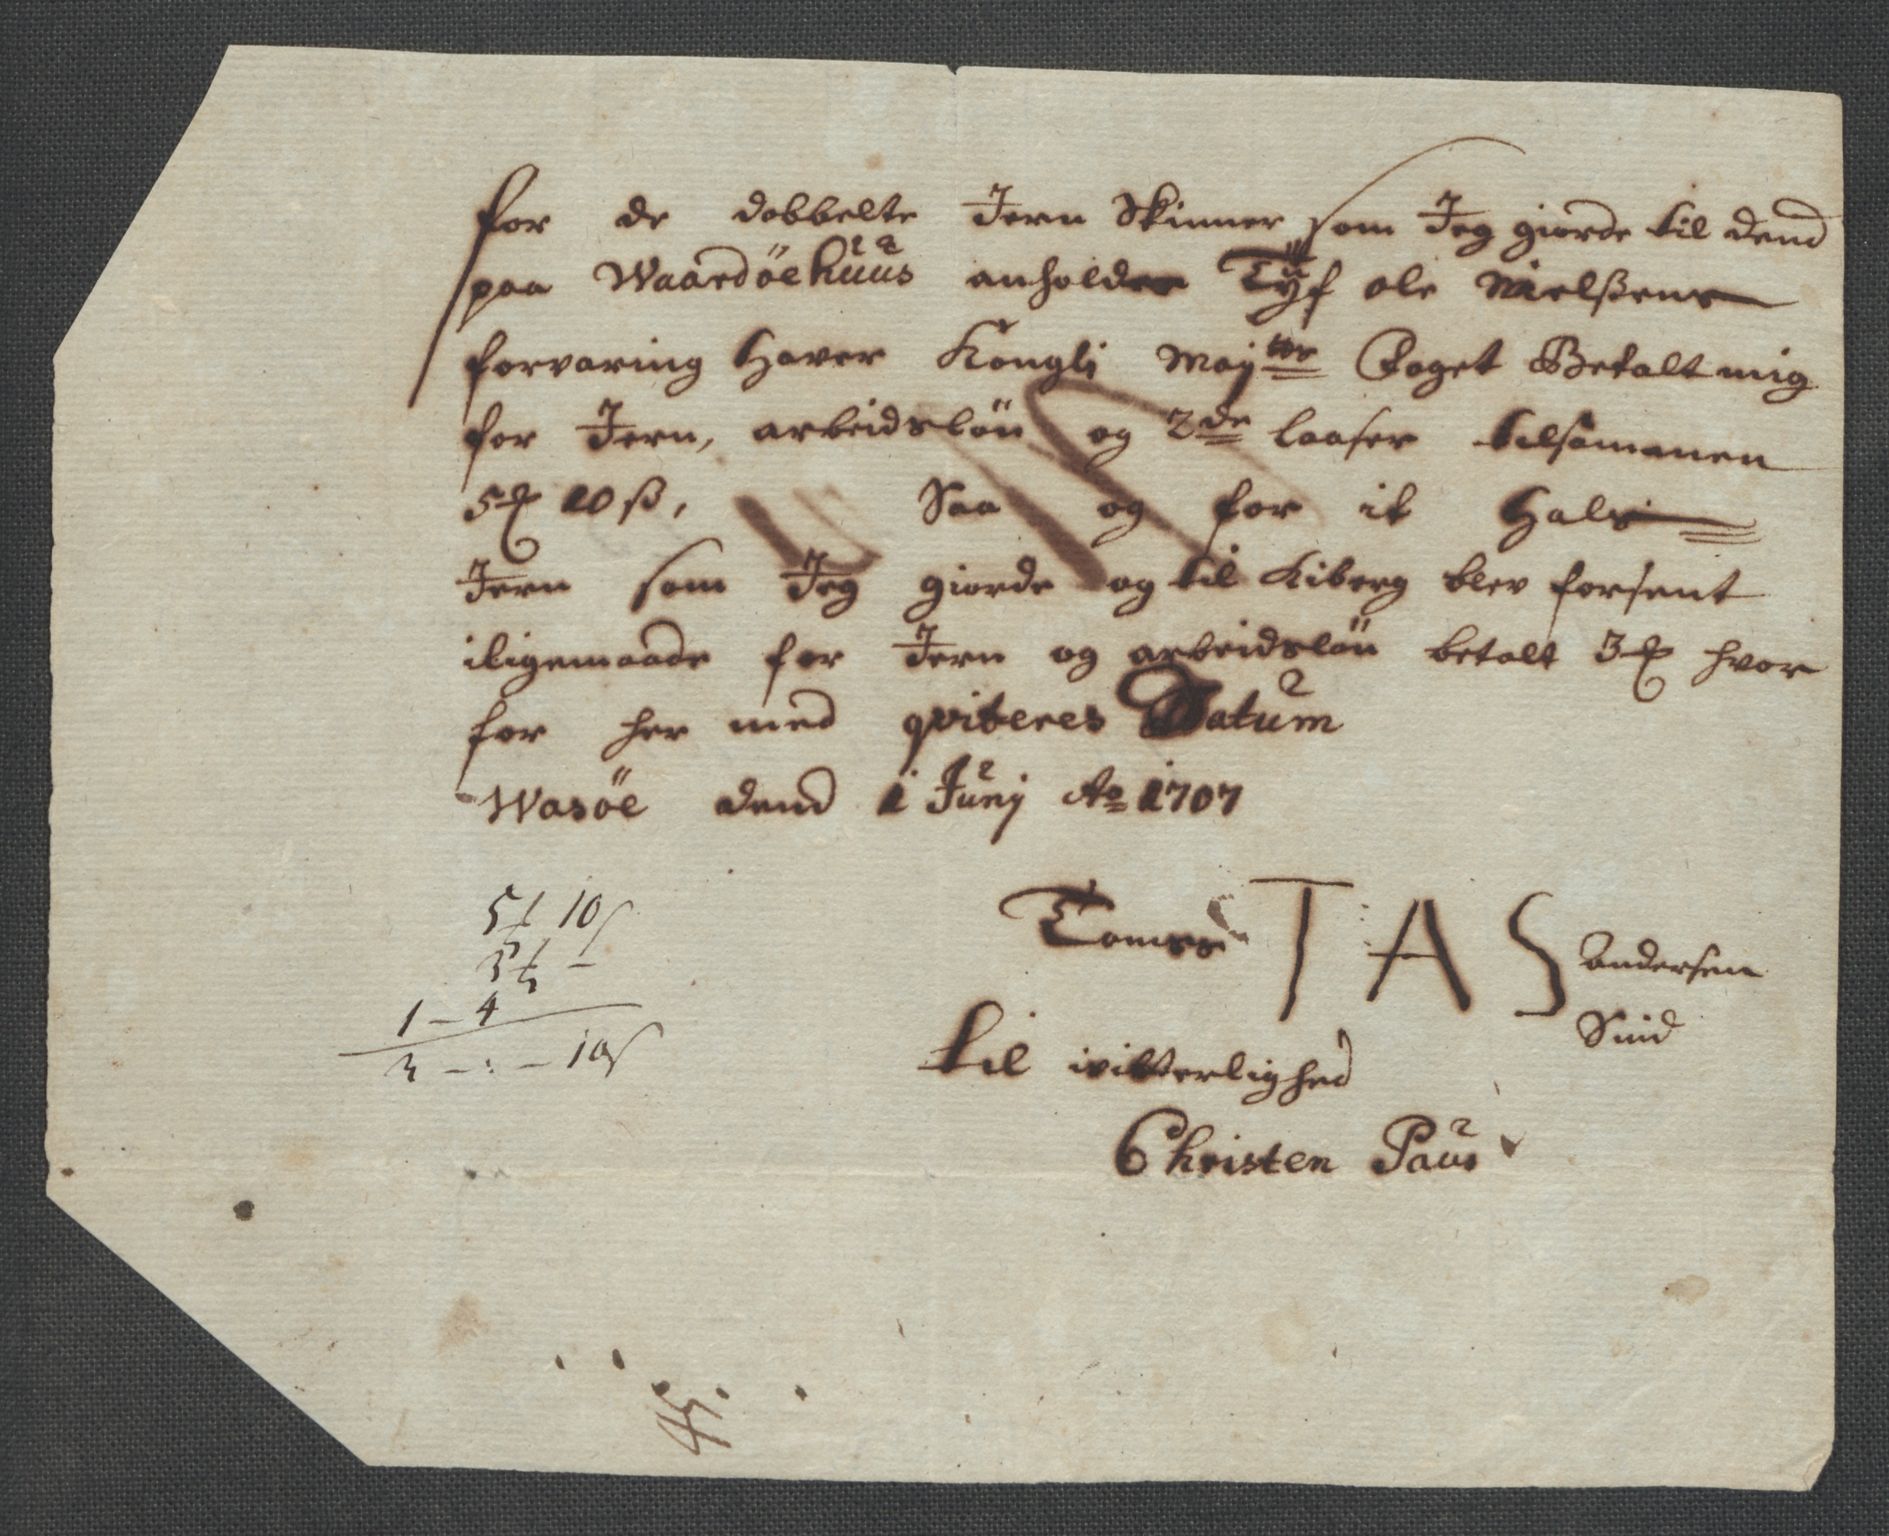 for de dobbelte Jern Skinner som Jeg giorde til dend
paa Waardöehuus anholdne Tÿf ole Nielssens
forvaring Haver Kongli May:tts Foget Betalt mig
for Jern, arbeidslön og 2de laaser tilsammen
5 10 ß, Saa og for it Hals
Jern som Jeg giorde og til Kiberg blev forsent
iligemaade for Jern og arbeidslön betalt 3 hvor
for her med qviteres Datum
Wasöe dend 1 Junj Ao 1707
5 10
3 –
1 – 4
3 – : – 10
Tomes TAS Andersen
Smid
til vitterlighed
Christen Paus
45.